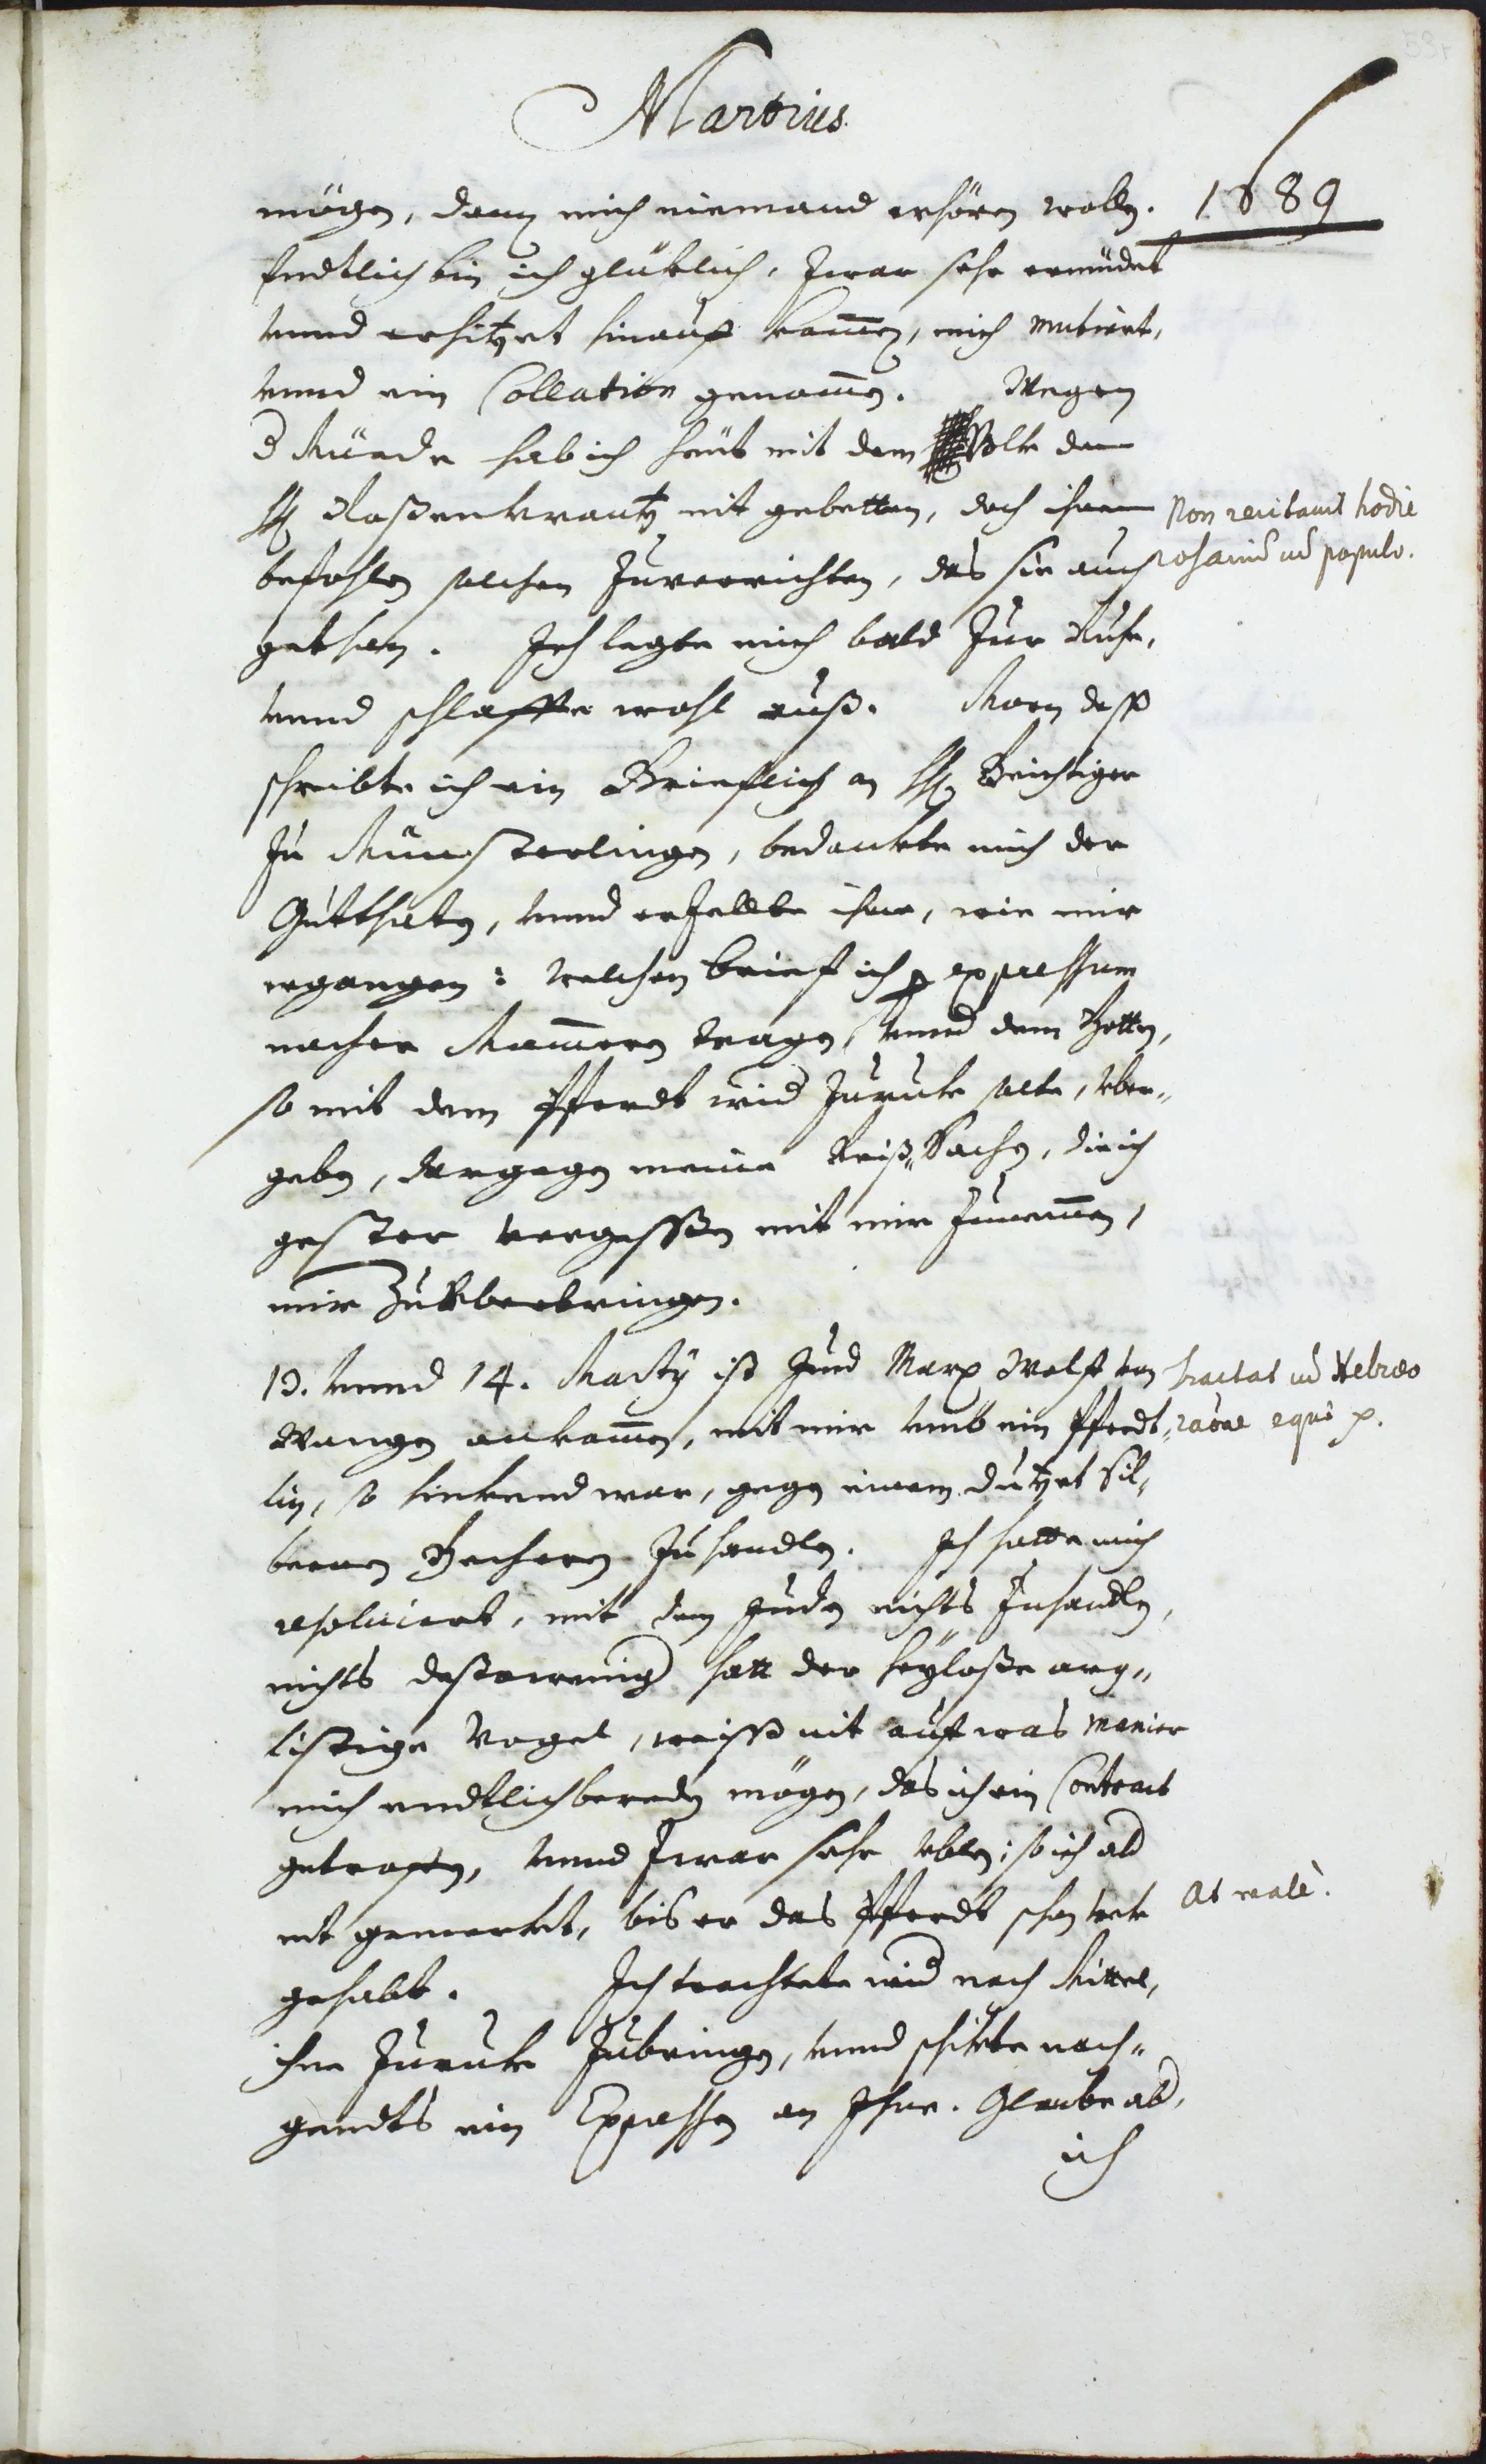 Martius
1689
mögen, dann mich niemand erhören wollen.
Endtlich bin ich glüklich, zwar sehr ermüdet
vnnd erhitzet hinauf kommen, mich mutiert,
vnnd ein Collation genommen. Wegen
d Müede hab ich heüt mit dem Volk den
H Roßenkrantz nit gebetten, doch ihnen
befohlen solchen zuverrichten, das sie auch
gethan. Ich legte mich bald zur Ruhe,
vnnd schlaffte wohl auß. Morn deß
schribte ich ein Brieflich an H. Beichtiger
zu Münsterlingen, bedankte mich der
Gutthaten, vnnd erzellte ihme, wie mir
ergangen: welchen brief ich p expressum
nacher Mammeren tragen, vnnd dem Botten,
so mit dem Pferdt wid zuruk solte, vber„
geben, dargegen meine Reiß„Sachen, die ich
gester vergessen mit mir zunemmen,
mir zu vberbringen.
13. vnnd 14. Martÿ ist Jud Marx Wolf von
Wangen ankommen, mit mir vmb ein Pferdt„
lin, so hinkend war, gegen einem dutzet sil„
bernen Becheren zuhandlen. Ich hatte mich
resolviert, mit dem Juden nichts zuhandlen,
nichts destoweniger hatt der heÿloße arg„
listige Vogel, weiß nit auf was manier
mich endtlich bereden mögen, das ich ein Contract
getrofen, vnnd zwar sehr vblen; so ich ab
nit gemerkt, bis er das Pferdt schon wek
gehabt. Ich trachtete wid nach Mittel,
ihne zuruk zubringen, vnnd schikte nach„
gendts ein Expressen an Ihne. Glaube ab,
ich
Non recitavit hodie
rosariu cu populo.
Tractat cu Hebræo
raone equi p.
At male.